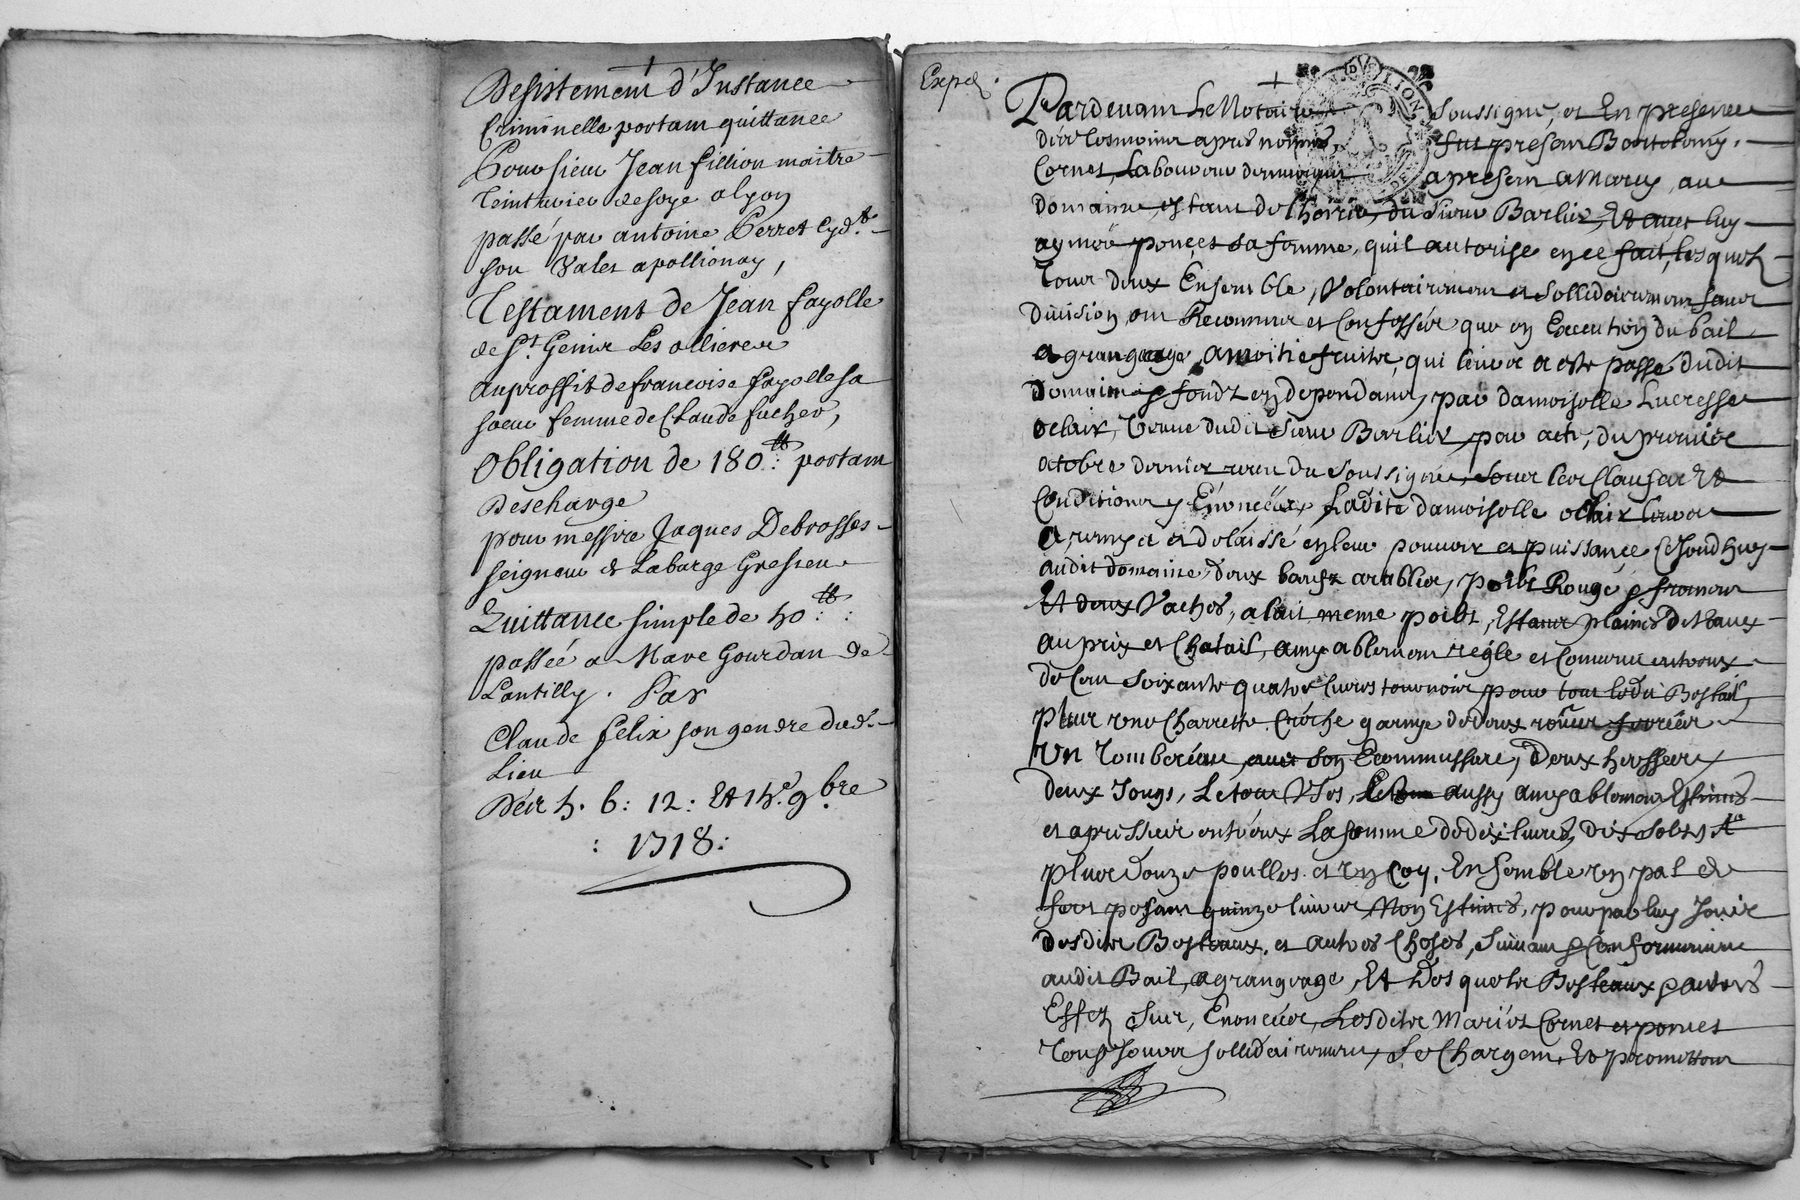 Desistement d'Instance
Criminelle portant quittance
Pour sieur Jean fillion maitre
teinturier de soye a lyon
passé par antoine Perret Cyd.t
son valet a pollionay,
Testament de Jean fayolle
de St. Genis Les ollieres
au proffit de francoise fayolle sa
soeur femme de Claude fucher,
Obligation de 180.tt: portant
Descharge
pour messire Jaques Debrosses
seigneur de Labarge Gresieu
Quittance simple de 40:tt:
passéé a Marc Gourdan de
Lantilly. Par
Claude felix son gendre dud.t
Lieu
Déér 4. 6: 12: Et 14.e 9.bre
: 1718:
Exped.
Pardevant Le Notaire soussigné, et En presence
des tesmoins apres nommés, fut present Bartelemy
Cornet, Laboureur demeurant a present a Marcy, au
domaine, estant de lhoirie, du Sieur Barlier, Et avec luy
aymée poncet sa femme, quil autorise en ce fait, lesquels
tous deux Ensemble, Volontairement et sollidairement sans
division, ont Reconnus et Confessés que en Execution du bail
a grangeage, a moitié fruits, qui leur a esté passé dudit
Domaine & fondz en dependans, par damoiselle Lucresse
oclair, Veuve dudit Sieur Barlier, par acte, du premier
octobre dernier receu du soussigné, sous les Clauses Et
Conditions y Enoncées, Ladite damoiselle oclair leur a
remys et delaissé en leur pouvoir et puissance Cejourdhuy
audit domaine, deux boeufz arables, poils Rouge & froment
Et deux Vaches, a lait meme poils, Estant pleines de Veaux
au prix et Chatail, amyablement réglé et Convenu entreux
de Cent soixante quatre livres tournois pour tout ledit Bestail,
plus une Charrette Créche garnye de deux roües ferréés
Un Tombereau, avec son Ecommussure, Deux herses
deux Jougs, Le tout Usés, Le tout aussy amyablement Estimés
et apressiés entréux La somme de dix livres, dix solz
plus douze poulles et un Coq, Ensemble un pal de
fert pesant quinze livres Non Estimés, pour par luy Jouir
desdits Bestiaux, et autres choses, suivant & Conformement
audit Bail, a grangeage, Et Desquels Bestiaux & autres
Effetz sus, Enoncéés, Lesdits Mariés Cornet et poncet
tousjours sollidairement, Se Chargent, Et promettent